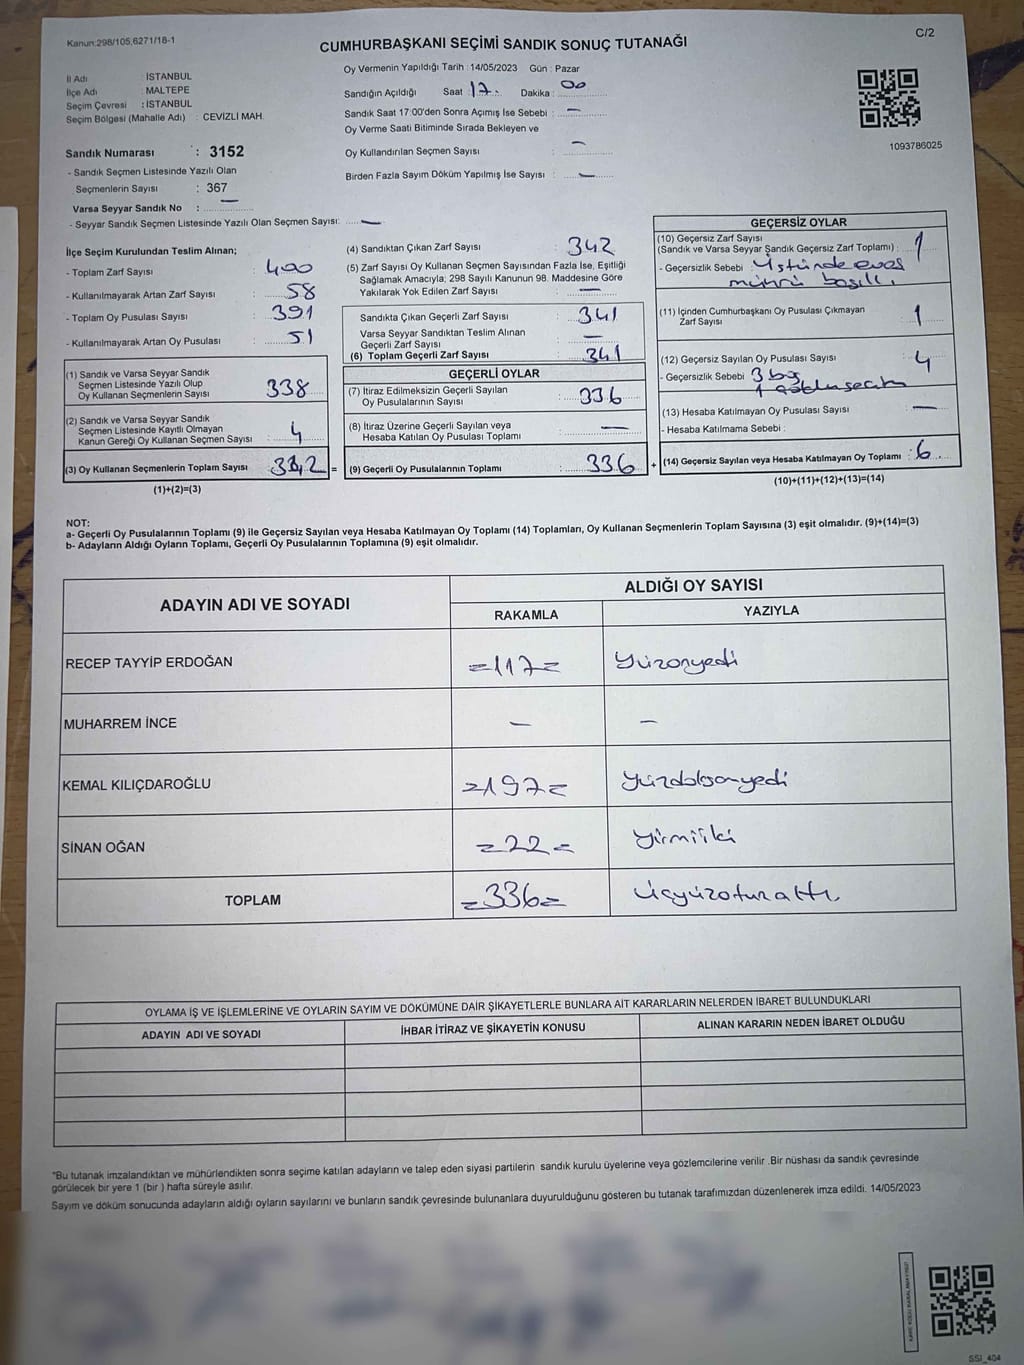 Kanun:298/105,6271/18-1
C/2
CUMHURBAŞKANI SEÇİMİ SANDIK SONUÇ TUTANAĞI
İl Adı : İSTANBUL
İlçe Adı : MALTEPE
Seçim Çevresi : İSTANBUL
Seçim Bölgesi (Mahalle Adı) : CEVİZLİ MAH.
Sandık Numarası : 3152
- Sandık Seçmen Listesinde Yazılı Olan
Seçmenlerin Sayısı : 367
Varsa Seyyar Sandık No : —
- Seyyar Sandık Seçmen Listesinde Yazılı Olan Seçmen Sayısı: —
Oy Vermenin Yapıldığı Tarih :14/05/2023 Gün : Pazar
Sandığın Açıldığı Saat 17. Dakika : 00
Sandık Saat 17:00'den Sonra Açımış İse Sebebi : —
Oy Verme Saati Bitiminde Sırada Bekleyen ve
Oy Kullandırılan Seçmen Sayısı : —
Birden Fazla Sayım Döküm Yapılmış İse Sayısı : —
1093786025
İlçe Seçim Kurulundan Teslim Alınan;
- Toplam Zarf Sayısı : 400
- Kullanılmayarak Artan Zarf Sayısı : 58
- Toplam Oy Pusulası Sayısı : 391
- Kullanılmayarak Artan Oy Pusulası : 51
(1) Sandık ve Varsa Seyyar Sandık
Seçmen Listesinde Yazılı Olup
Oy Kullanan Seçmenlerin Sayısı 338
(2) Sandık ve Varsa Seyyar Sandık
Seçmen Listesinde Kayıtlı Olmayan
Kanun Gereği Oy Kullanan Seçmen Sayısı : 4
(3) Oy Kullanan Seçmenlerin Toplam Sayısı : 342 =
(1)+(2)=(3)
(4) Sandıktan Çıkan Zarf Sayısı : 342
(5) Zarf Sayısı Oy Kullanan Seçmen Sayısından Fazla İse, Eşitliği
Sağlamak Amacıyla; 298 Sayılı Kanunun 98. Maddesine Göre
Yakılarak Yok Edilen Zarf Sayısı : —
Sandıkta Çıkan Geçerli Zarf Sayısı : 341
Varsa Seyyar Sandıktan Teslim Alınan
Geçerli Zarf Sayısı : —
(6) Toplam Geçerli Zarf Sayısı : 341
GEÇERLİ OYLAR
(7) İtiraz Edilmeksizin Geçerli Sayılan
Oy Pusulalarının Sayısı : 336
(8) İtiraz Üzerine Geçerli Sayılan veya
Hesaba Katılan Oy Pusulası Toplamı : —
(9) Geçerli Oy Pusulalarının Toplamı : 336 +
GEÇERSİZ OYLAR
(10) Geçersiz Zarf Sayısı
(Sandık ve Varsa Seyyar Sandık Geçersiz Zarf Toplamı) : 1
- Geçersizlik Sebebi : Üstünde evet
mührü basılı.
(11) İçinden Cumhurbaşkanı Oy Pusulası Çıkmayan
Zarf Sayısı : 1
(12) Geçersiz Sayılan Oy Pusulası Sayısı : 4
- Geçersizlik Sebebi : 3 boş
(13) Hesaba Katılmayan Oy Pusulası Sayısı : —
- Hesaba Katılmama Sebebi :
(14) Geçersiz Sayılan veya Hesaba Katılmayan Oy Toplamı : 6.
(10)+(11)+(12)+(13)=(14)
NOT:
a- Geçerli Oy Pusulalarının Toplamı (9) ile Geçersiz Sayılan veya Hesaba Katılmayan Oy Toplamı (14) Toplamları, Oy Kullanan Seçmenlerin Toplam Sayısına (3) eşit olmalıdır. (9)+(14)=(3)
b- Adayların Aldığı Oyların Toplamı, Geçerli Oy Pusulalarının Toplamına (9) eşit olmalıdır.
ADAYIN ADI VE SOYADI ALDIĞI OY SAYISI
RAKAMLA YAZIYLA
RECEP TAYYİP ERDOĞAN =117= Yüzonyedi
MUHARREM İNCE — —
KEMAL KILIÇDAROĞLU =197= Yüzdoksanyedi
SİNAN OĞAN =22= yirmiiki
TOPLAM =336= üçyüzotuzaltı
OYLAMA İŞ VE İŞLEMLERİNE VE OYLARIN SAYIM VE DÖKÜMÜNE DAİR ŞİKAYETLERLE BUNLARA AİT KARARLARIN NELERDEN İBARET BULUNDUKLARI
ADAYIN ADI VE SOYADI İHBAR İTİRAZ VE ŞİKAYETİN KONUSU ALINAN KARARIN NEDEN İBARET OLDUĞU
*Bu tutanak imzalandıktan ve mühürlendikten sonra seçime katılan adayların ve talep eden siyasi partilerin sandık kurulu üyelerine veya gözlemcilerine verilir .Bir nüshası da sandık çevresinde
görülecek bir yere 1 (bir ) hafta süreyle asılır.
Sayım ve döküm sonucunda adayların aldığı oyların sayılarını ve bunların sandık çevresinde bulunanlara duyurulduğunu gösteren bu tutanak tarafımızdan düzenlenerek imza edildi. 14/05/2023
SSİ_404